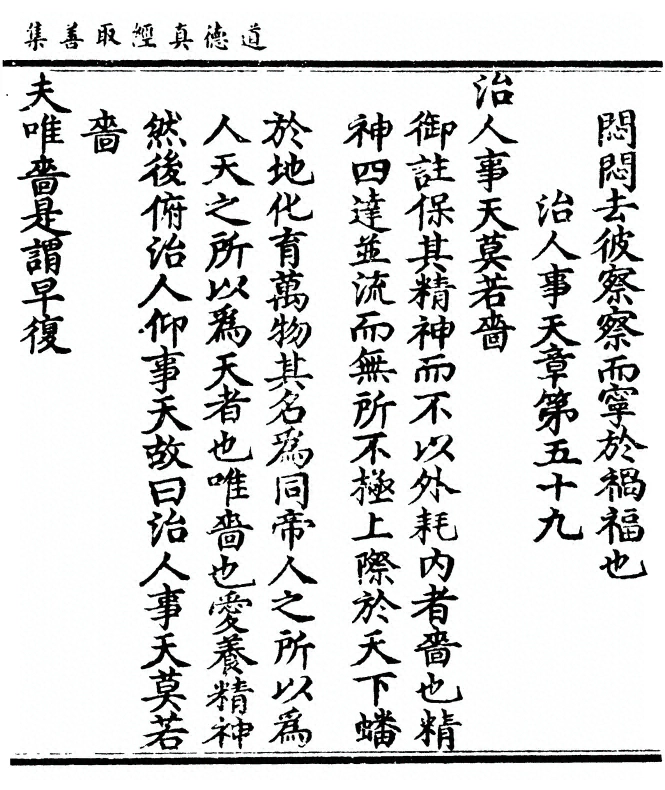 道德真經取善集
悶悶去彼察察而寧於禍福也
治人事天章第五十九
治人事天莫若嗇
御註保其精神而不以外耗內者嗇也精
神四達並流而無所不極上際於天下蟠
於地化育萬物其名為同帝人之所以為
人天之所以為天者也唯嗇也愛養精神
然後俯治人仰事天故曰治人事天莫若
嗇
夫唯嗇是謂早復